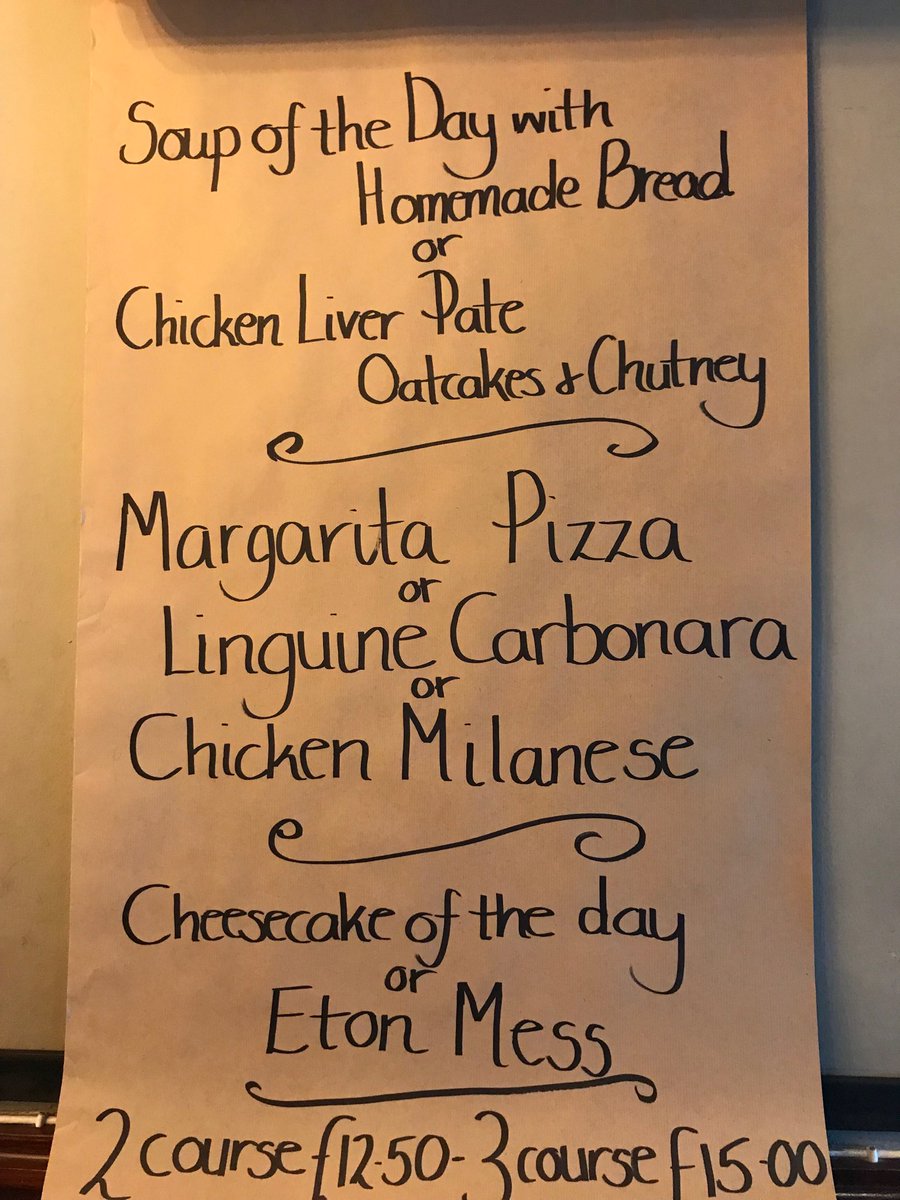 Soup of the Day with
Homemade Bread
or
Chicken Liver Pate
Oatcakes & Chutney
Margarita Pizza
or
Linguine Carbonara
or
Chicken Milanese
Cheesecake of the day
or
Eton Mess
2 course £12.50 - 3 course £15.00